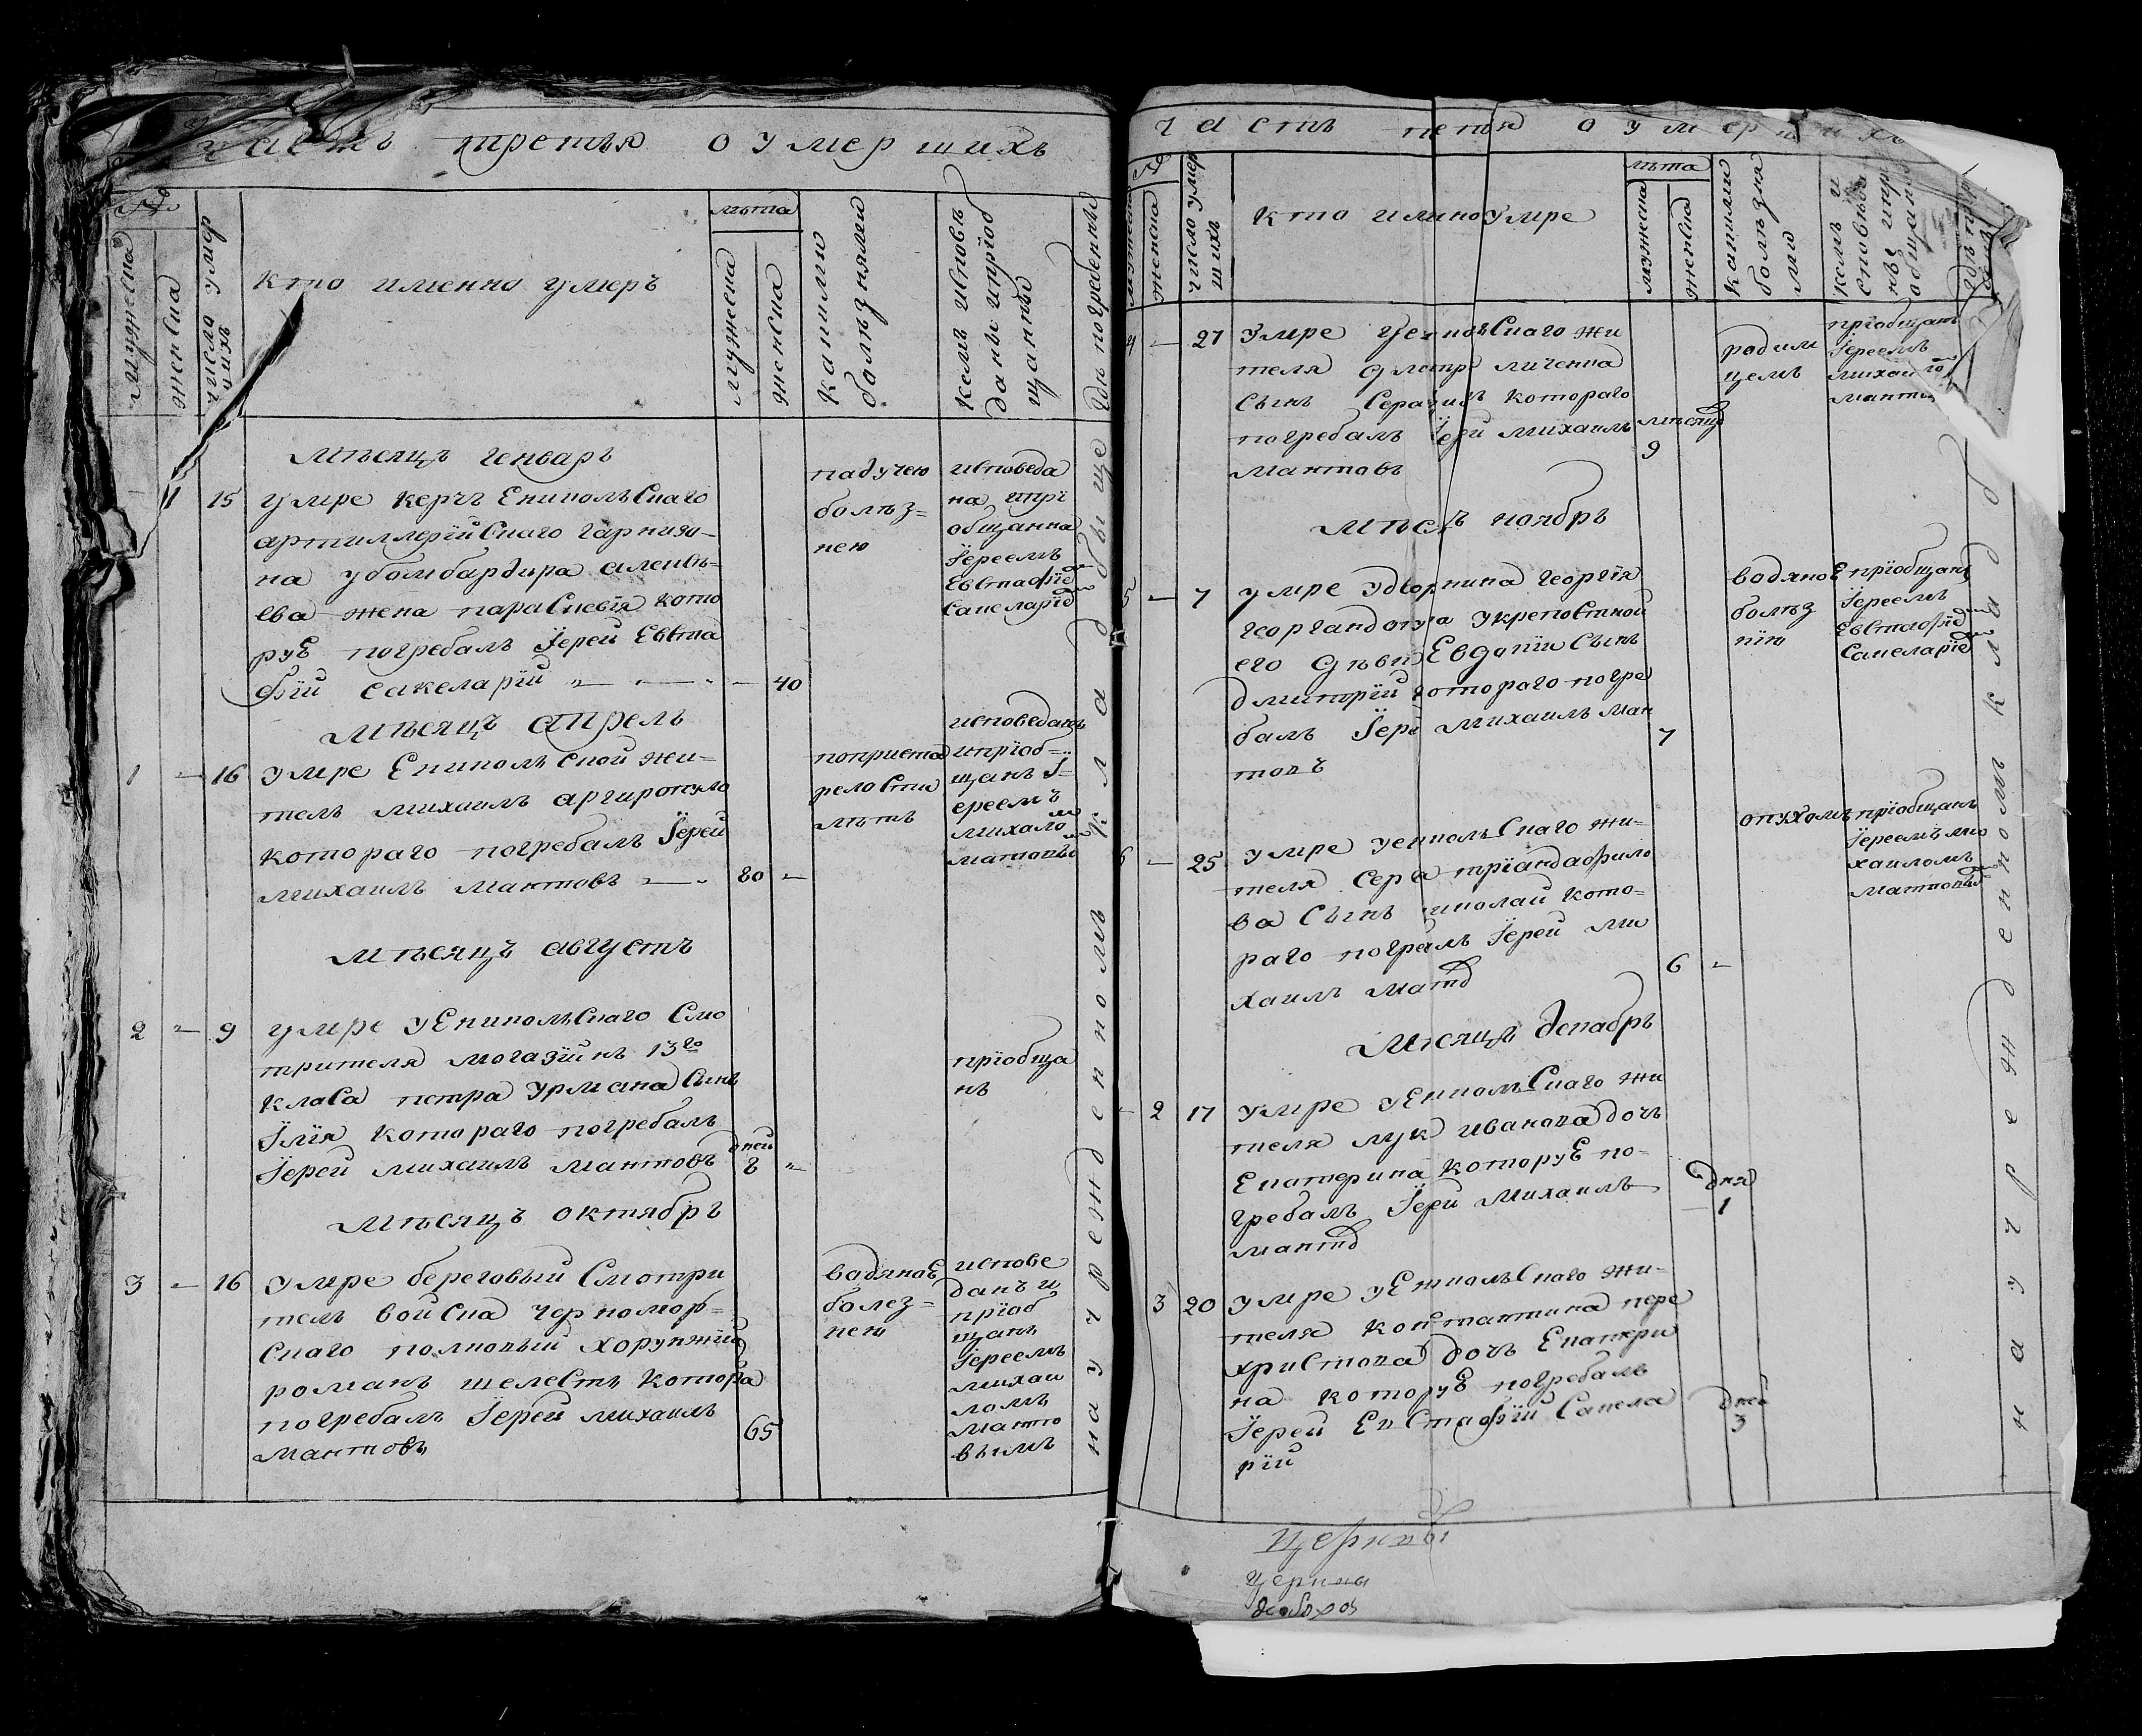 часть третья о умершихъ
№
мужеска
женска
число умер
шихъ
кто именно умеръ
лѣта
мужеска
женска
какими
болѣзнями
кемъ исповѣ
даны и прїоб
щанны
где погребенные
мѣсяцъ генварь
1 15 умре керчъ Еникольскаго
артиллерїйскаго гарнизо-
на у бомбардира алексѣ-
ева жена параскевїя кото
руЕ погребалъ Їерей Евста
фїй сакеларїй 40
падучею
болѣз=
нею
исповеда
на и прї
общанна
Їереемъ
Евстафїе
сакеларїе
мѣсяцъ апрель
1 16 умре Еникольской жи-
тель михаилъ аргиропуло
котораго погребалъ Їерей
михаилъ мантовъ 80
попрестарелости
лѣтъ
исповеданъ
и прїоб=
щанъ Ї-
ереемъ
михаило
мантовы
мѣсяцъ августъ
2 9 умре уЕникольскаго смо
трителя могазїйнъ 13го
класа петра урмана сынъ
Їлїя котораго погребалъ
Їерей михаилъ мантовъ
дней
8
прїобща
нъ
мѣсяцъ октябрь
3 16 умре береговый смотри
тель войска черномор=
скаго полковый хорунжїй
романъ шелестъ котора
погребалъ Їерей михаилъ 65
мантовъ
водяноЕ
болез=
нею
испове
данъ и
прїоб
щанъ
Їереемъ
михаи
ломъ
манто
вымъ
на учрежденномъ кладбыще
часть третя о умерших
№
мужеска
женска
число умер
шихъ
кто имяно умре
лѣта
мужеска
женска
какими
болѣзня
ми
кемъ и
споведа
ные и пр
общаны
4 27 умре Еникольскаго жи
теля дметр личенка
сынъ Серафимъ котораго
погребалъ Їерей михаилъ
мантовъ
мѣсяцъ
9
родим
цемъ
прїобщанъ
Їереемъ
михаило
манто
мѣсяцъ ноябрь
5 7 умре удворника георгїя
георгандопула укрепостной
его дѣвки Евдокїи сынъ
дмитрїй котораго погре
балъ Їерей михаилъ ман 7
товъ
водяноЕ
болѣз
нїю
прїобщанъ
Їереемъ
Евстафїе
сакеларїе
6 25 умре уЕникольскаго жи-
теля сера трїандафило
ва сынъ николай кото-
раго погребалъ Їерей ми
хаилъ мант 6
опухомъ
прїобщанъ
Їереемъ ми
хаиломъ
мантовы
мѣсяцъ декабрь
2 17 умре уЕникольскаго жи
теля лук иванова дочь
Екатерина которуЕ по-
гребалъ Їерей михаилъ
манто
дня
1
3 20 умре уЕникольскаго жи-
теля константина пере
христова дочь Екатери
на которуЕ погребалъ
Їерей Евстафїй сакела
рїй
дней
3
на учрежденномъ клад б
церквы
церквы